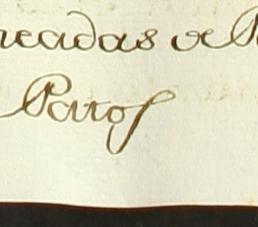 neadas de P
Patos